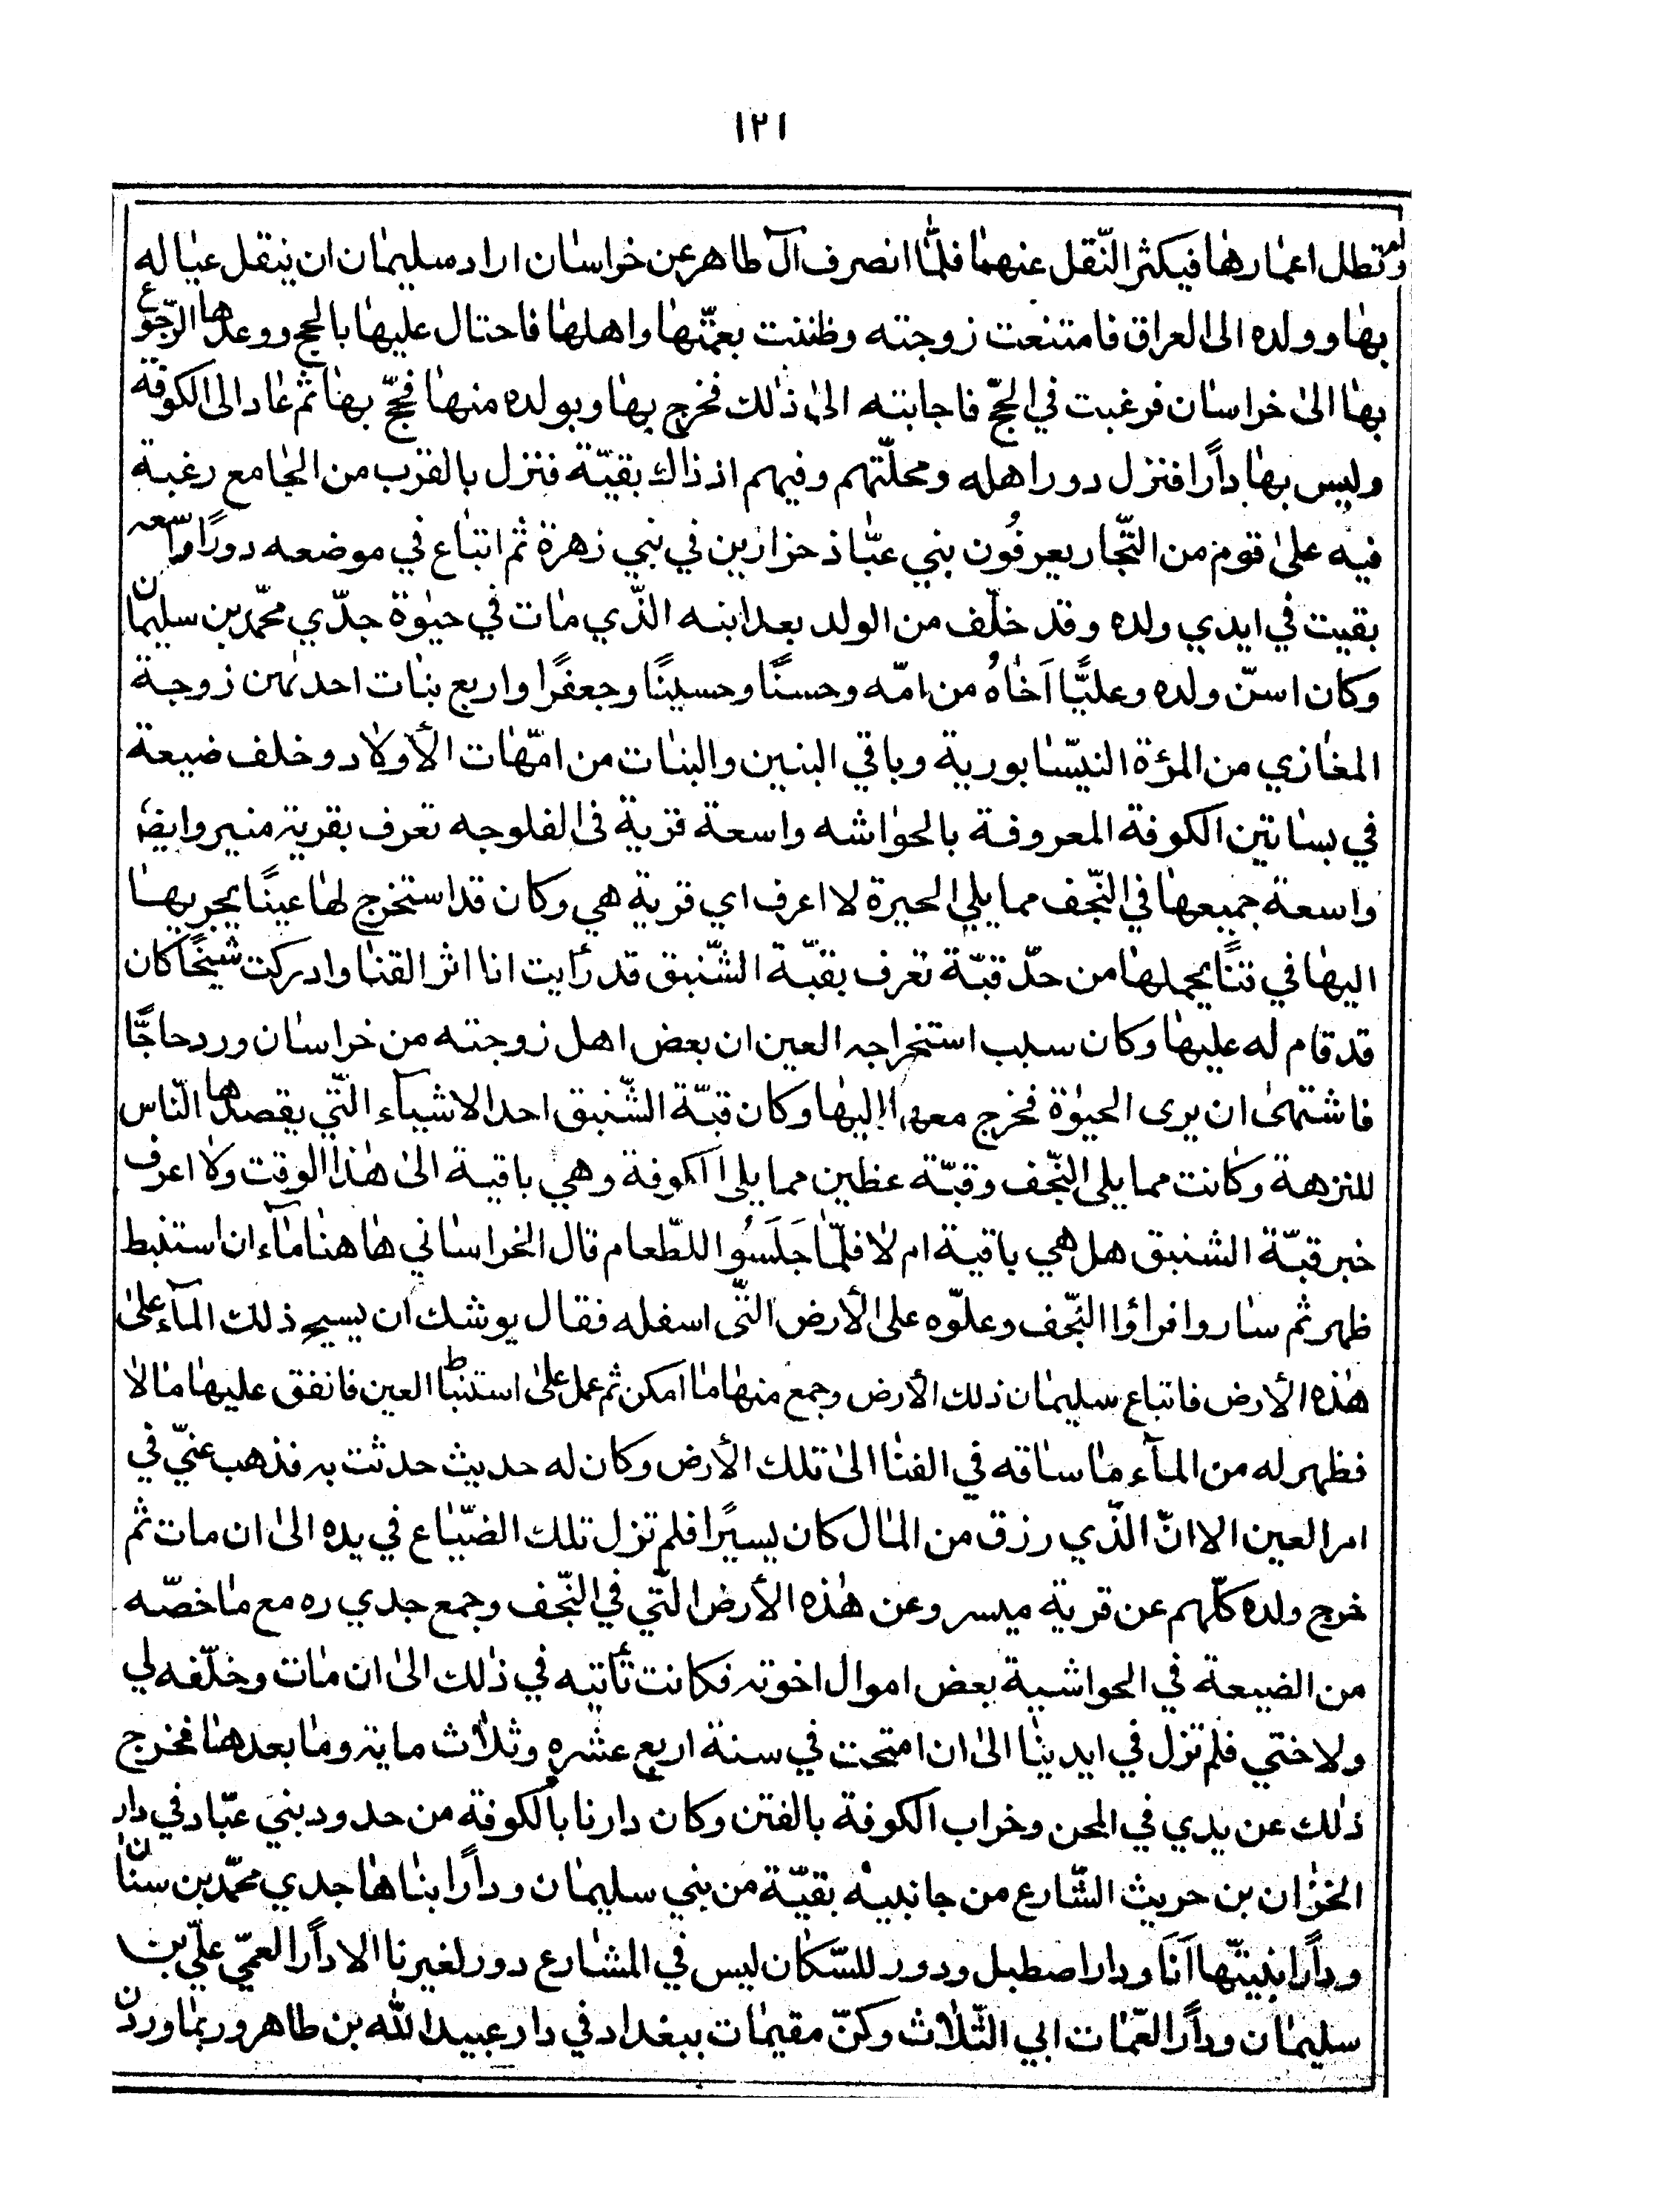 ١٢١
ولم تطل اعمارها فيكثر النّقل عنهما فلمّا انصرف آل طاهر عن خراسان اراد سليمان ان ينقل عياله
بها وولده الى العراق فامتنعت زوجته وظننت بعمّتها واهلها فاحتال عليها بالحج ووعدها الرّجوع
بها الى خراسان فرغبت في الحجّ فاجابته الى ذلك فخرج بها وبولده منها فحجّ بها ثم عاد الى الكوفة
وليس بها دارًا فنزل دور اهله ومحلّتهم وفيهم اذ ذاك بقيّة فنزل بالقرب من الجامع رغبة
فيه على قوم من التّجار يعرفُون بني عبّاد خزازين في بني زهرة ثم ابتاع في موضعه دورًا واسعه
بقيت في ايدي ولده وقد خلّف من الولد بعد ابنه الذّي مات في حيوة جدّي محمّد بن سليمان
وكان اسنّ ولده وعليًّا اَخاهُ من امّه وحسنًا وحسينًا وجعفرًا واربع بنات احدلهن زوجة
المغازي من المرٔة النيسّابورية وباقي البنين والبنات من امّهات الأولاد وخلف ضيعة
في بساتين الكوفة المعروفة بالحواشه واسعة قرية في الفلوجه تعرف بقرية منير وايضا
واسعة جميعها في النّجف مما يلي الحيرة لا اعرف اي قرية هي وكان قد استخرج لها عينًا يجريها
اليها في قنًا يحملها من حدّ قبّة تعرف بقبّة الشّنبق قد رأيت انا اثر القنا وادركت شيخًا كان
قد قام له عليها وكان سبب استخراجه العين ان بعض اهل زوجته من خراسان ورد حاجًّا
فاشتهى ان يرى الحيوة فخرج معه اليها وكان قبّة الشّنبق احد الاشياء التّي يقصدها النّاس
للنزهة وكانت مما يلي النّجف وقبّة عظين مما يلي الكوفة وهي باقية الى هذا الوقت ولا اعرف
خبر قبّة الشنبق هل هي باقية ام لا فلمّا جَلَسُوا للطّعام قال الخراساني ها هنا ماء ان استنبط
ظهر ثم ساروا فرأوا النّجف وعلوّه على الأرض التّى اسفله فقال يوشك ان يسيح ذلك الماء على
هذه الأرض فابتاع سليمان ذلك الأرض وجمع منها ما امكن ثم عمل على استنباط العين فانفق عليها مالا
فظهر له من الماء ما ساقه في الفنا الى تلك الأرض وكان له حديث حدثت به فذهب عنّي في
امر العين الا انّ الذّي رزق من المال كان يسيرًا فلم تزل تلك الضيّاع في يده الى ان مات ثم
خرج ولده كلّهم عن قرية ميسر وعن هذه الأرض التّي في النّجف وجمع جدي ره مع ما خصّه
من الضيعة في الحواشية بعض اموال اخوته فكانت تأتيه في ذلك الى ان مات وخلّفه لي
ولاختي فلم تزل في ايدينا الى ان امتحت في سنة اربع عشره وثلاث ماية وما بعدها فخرج
ذلك عن يدي في المحن وخراب الكوفة بالفتن وكان دارنا بالكوفة من حدود بني عبّاد في دار
الخزان بن حريث الشّارع من جانبيه بقيّة من بني سليمان ودارًا بناها جدي محمّد بن سنان
ودارًا بنيتّها اَنَا ودار اصطبل ودور للسّكان ليس في المشارع دور لغيرنا الا دارًا لعمّي عليّ بن
سليمان ودارًا لعّمات ابي الثّلاث وكنّ مقيمات ببغداد في دار عبيد الله بن طاهر وربما وردن